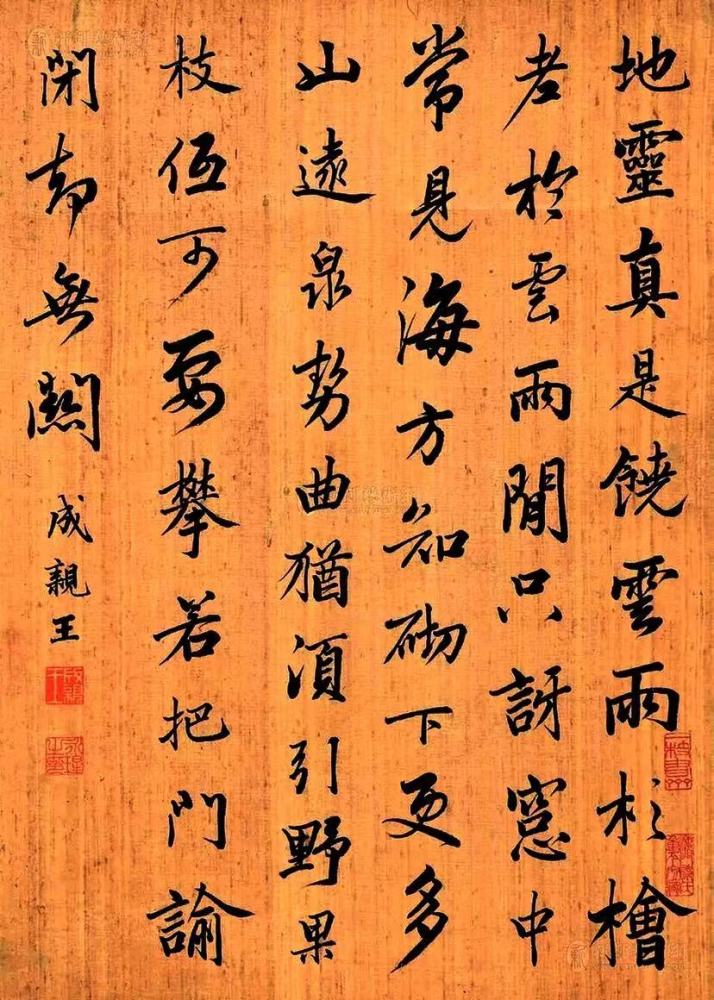 地靈真是饒雲雨杉檜
老於雲雨間只訝窓中
常見海方知砌下更多
山遠泉勢曲猶須引野果
枝低可要攀若把門諭
閉却無關
成親王
成親王